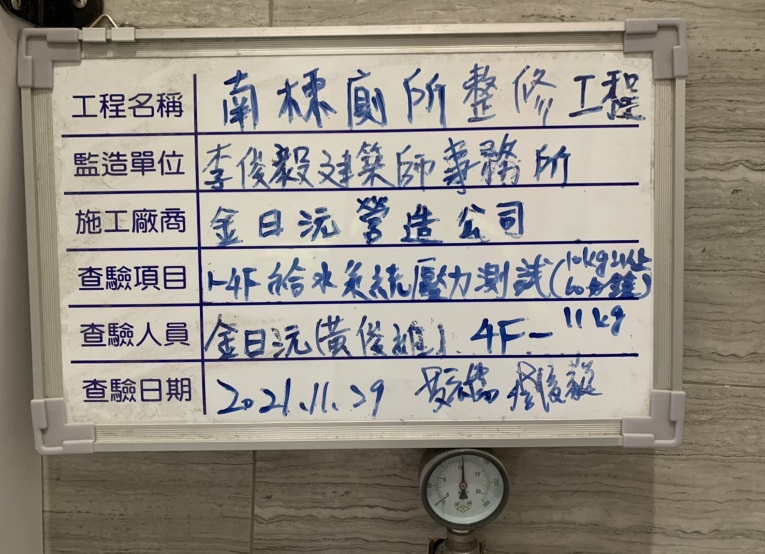 工程名稱 南棟廁所整修工程
監造單位 李俊毅建築師事務所
施工廠商 金日沅營造公司
查驗項目 1-4F給水系統壓力測試(10kg以上 60分鐘)
查驗人員 金日沅(黃俊雄) 4F- 11kg
查驗日期 2021.11.29